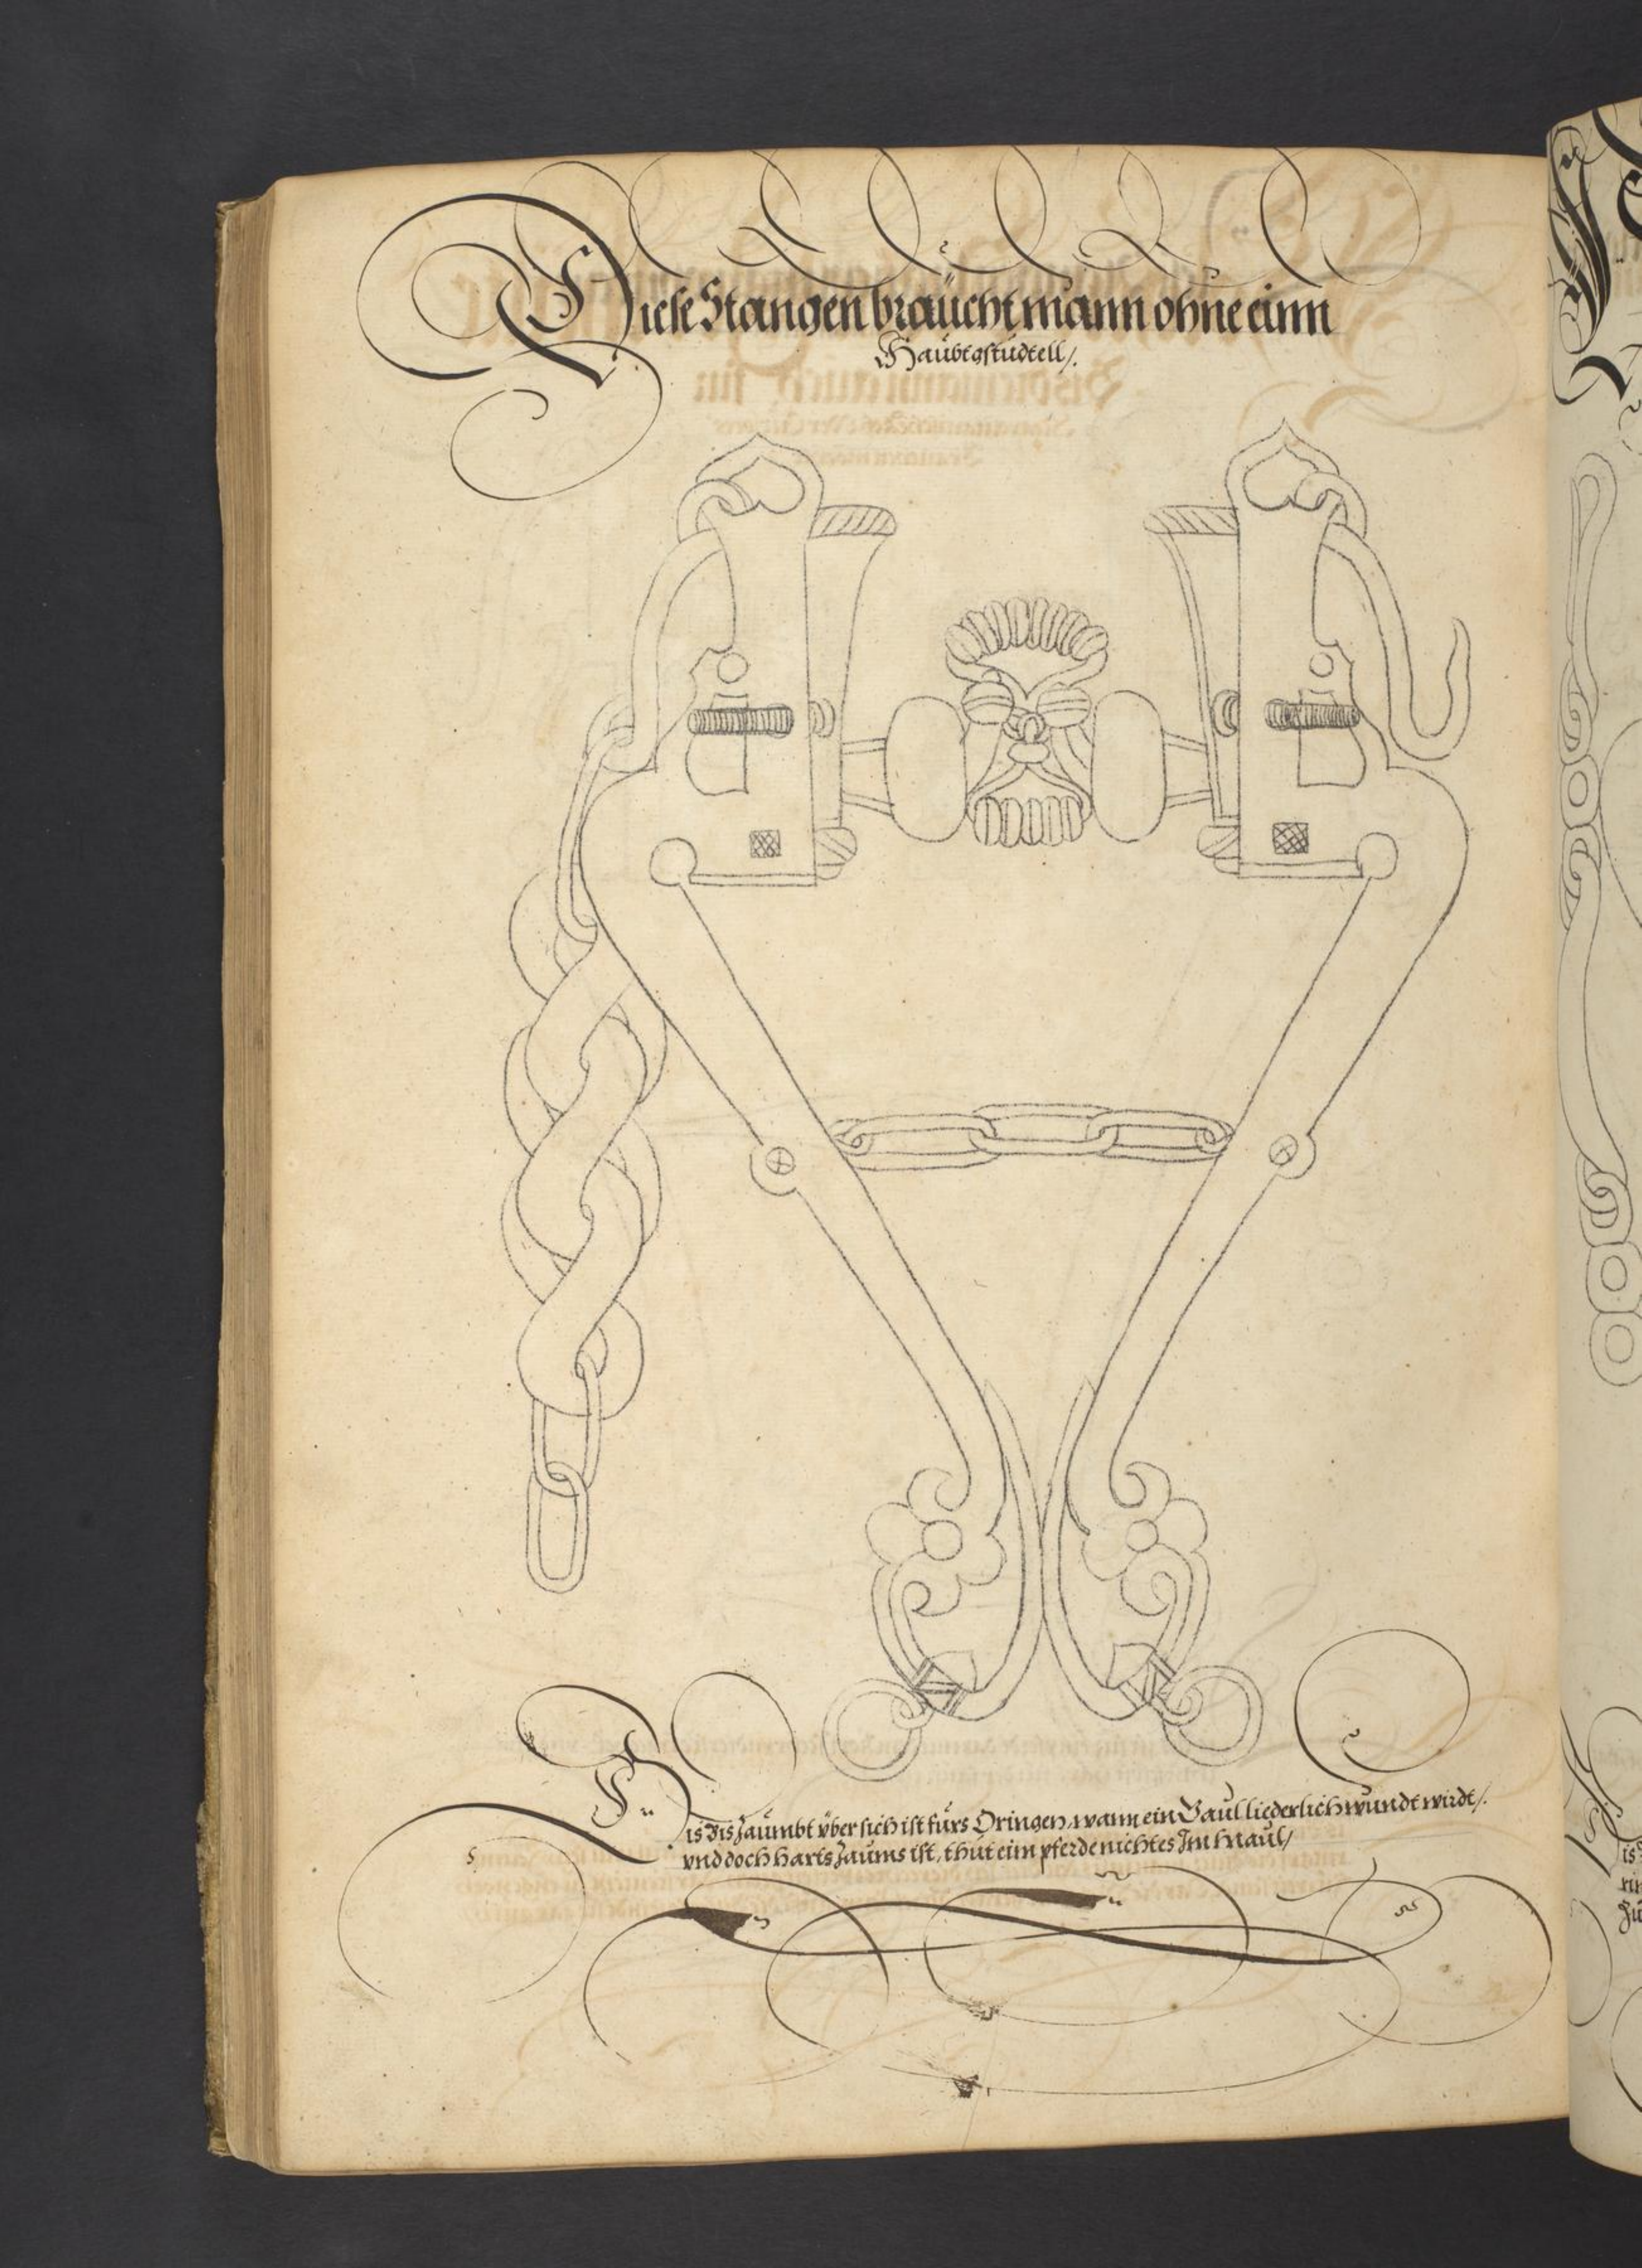 Diese Stangen braücht mann ohne einn
Haübtgstüdtell/.
Dis Dis Zaümbt vber sich ist fürs Dringen, wann ein Gaül liederlich wundt wirdt/.
vnd doch harts Zaüms ist, thüt eim pferde nichtes Im Maül/